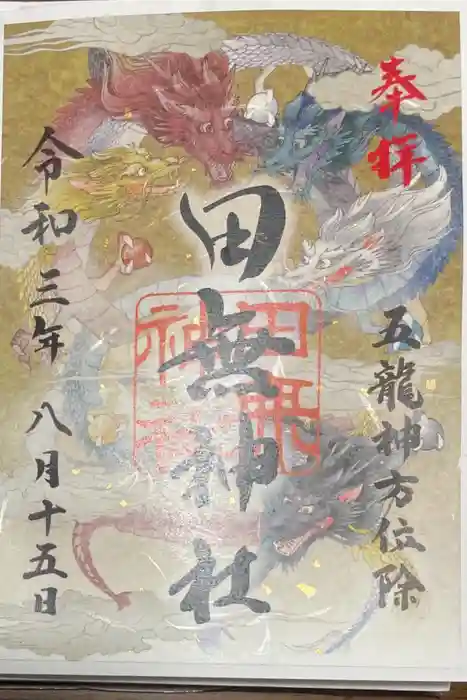 奉拝
五龍神方位除
田無神社
令和三年八月十五日